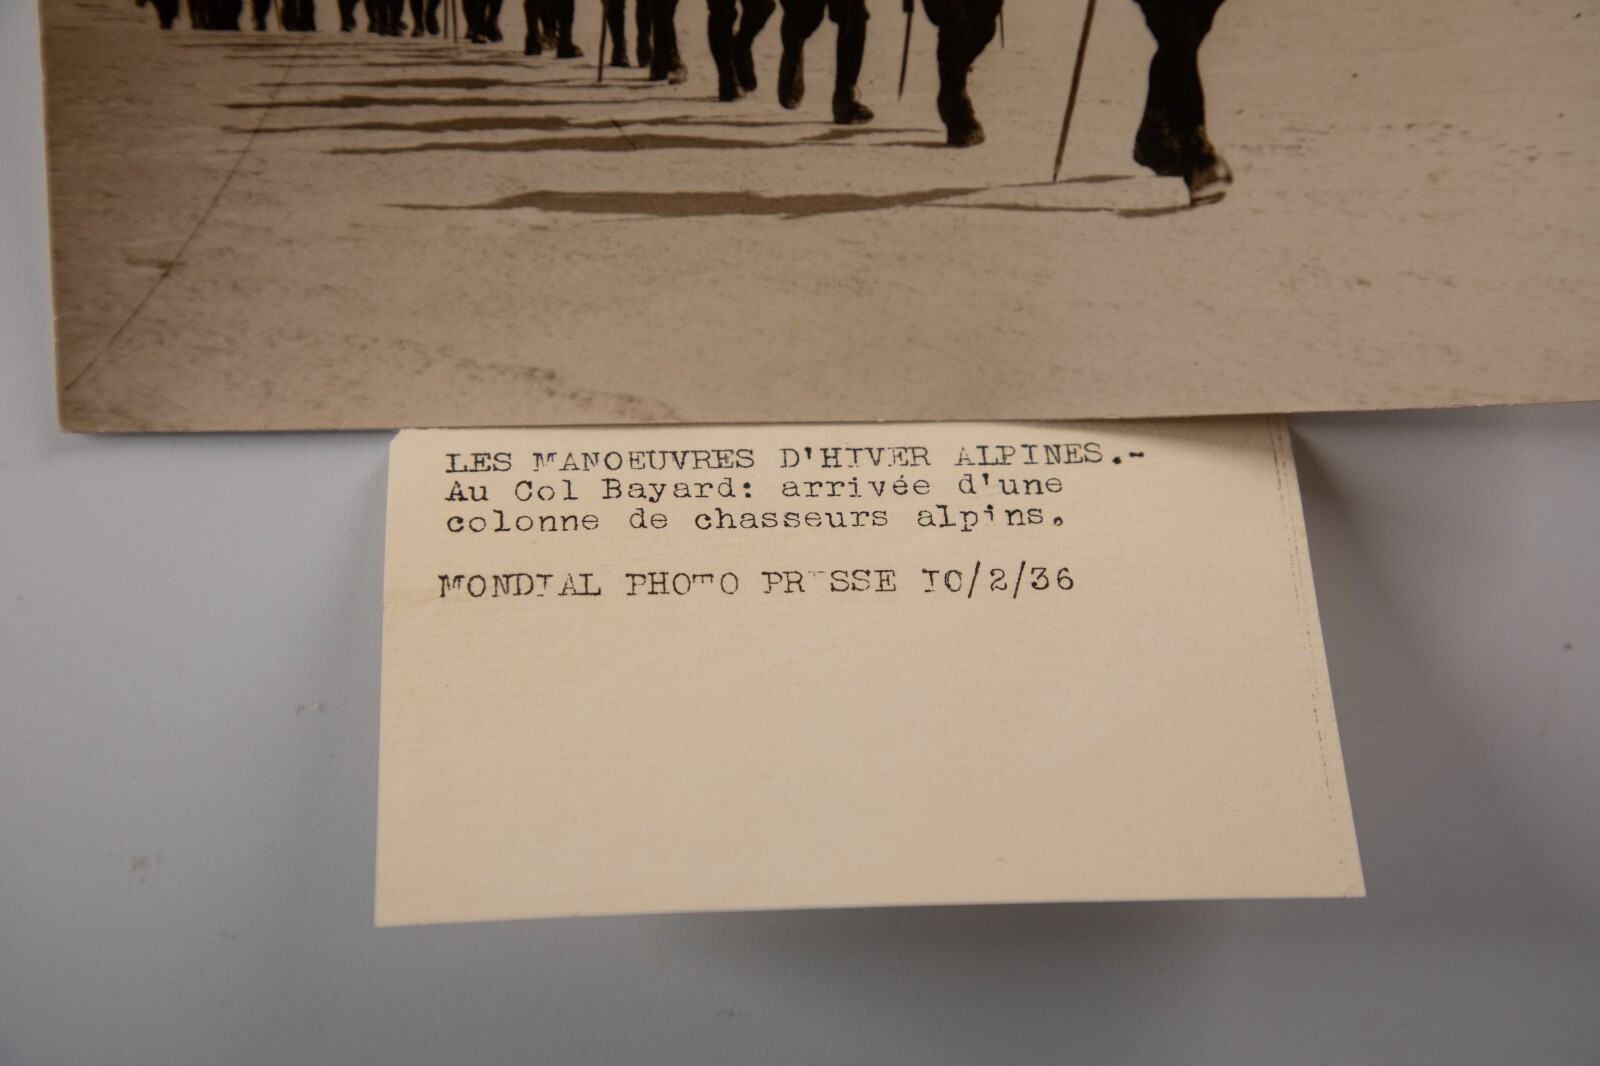 LES MANOEUVRES D'HIVER ALPINES.-
Au Col Bayard: arrivée d'une
colonne de chasseurs alpins.
MONDIAL PHOTO PRESSE IO/2/36